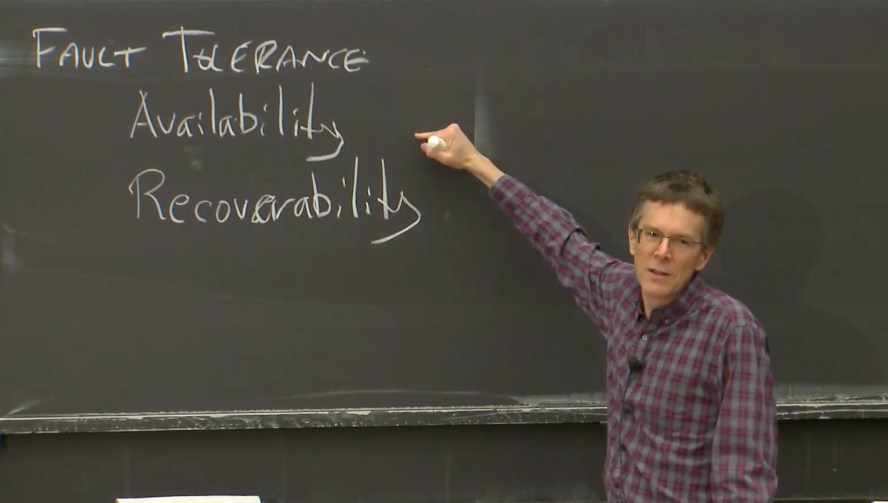 FAULT TOLERANCE
Availability
Recoverability